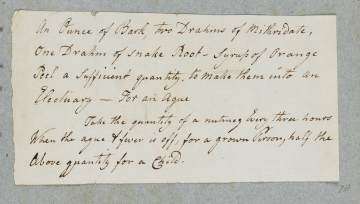 An Ounce of Bark, two Drahms of Mithridate,
One Drahm of Snake Root - Syrup of Orange
Peel a sufficient quantity, to make them into an
Electuary — For an Ague
Take the quantity of a nutmeg Every three hours
When the ague & fever is off, for a grown Person, half the
Above quantity for a Child.